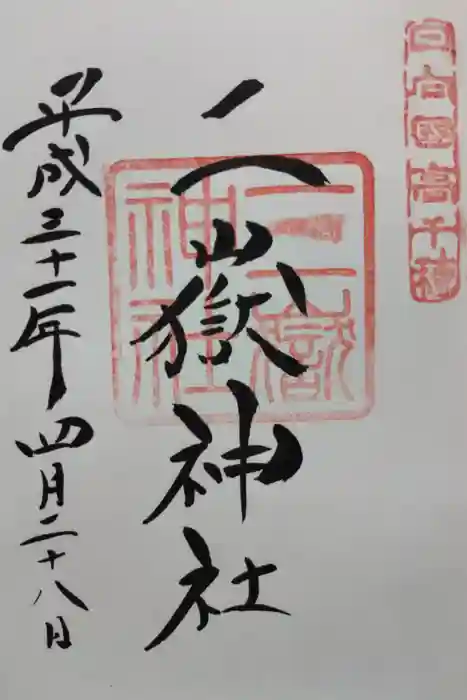 日向國高千穂
二嶽神社
二嶽
神社
平成三十一年四月二十八日